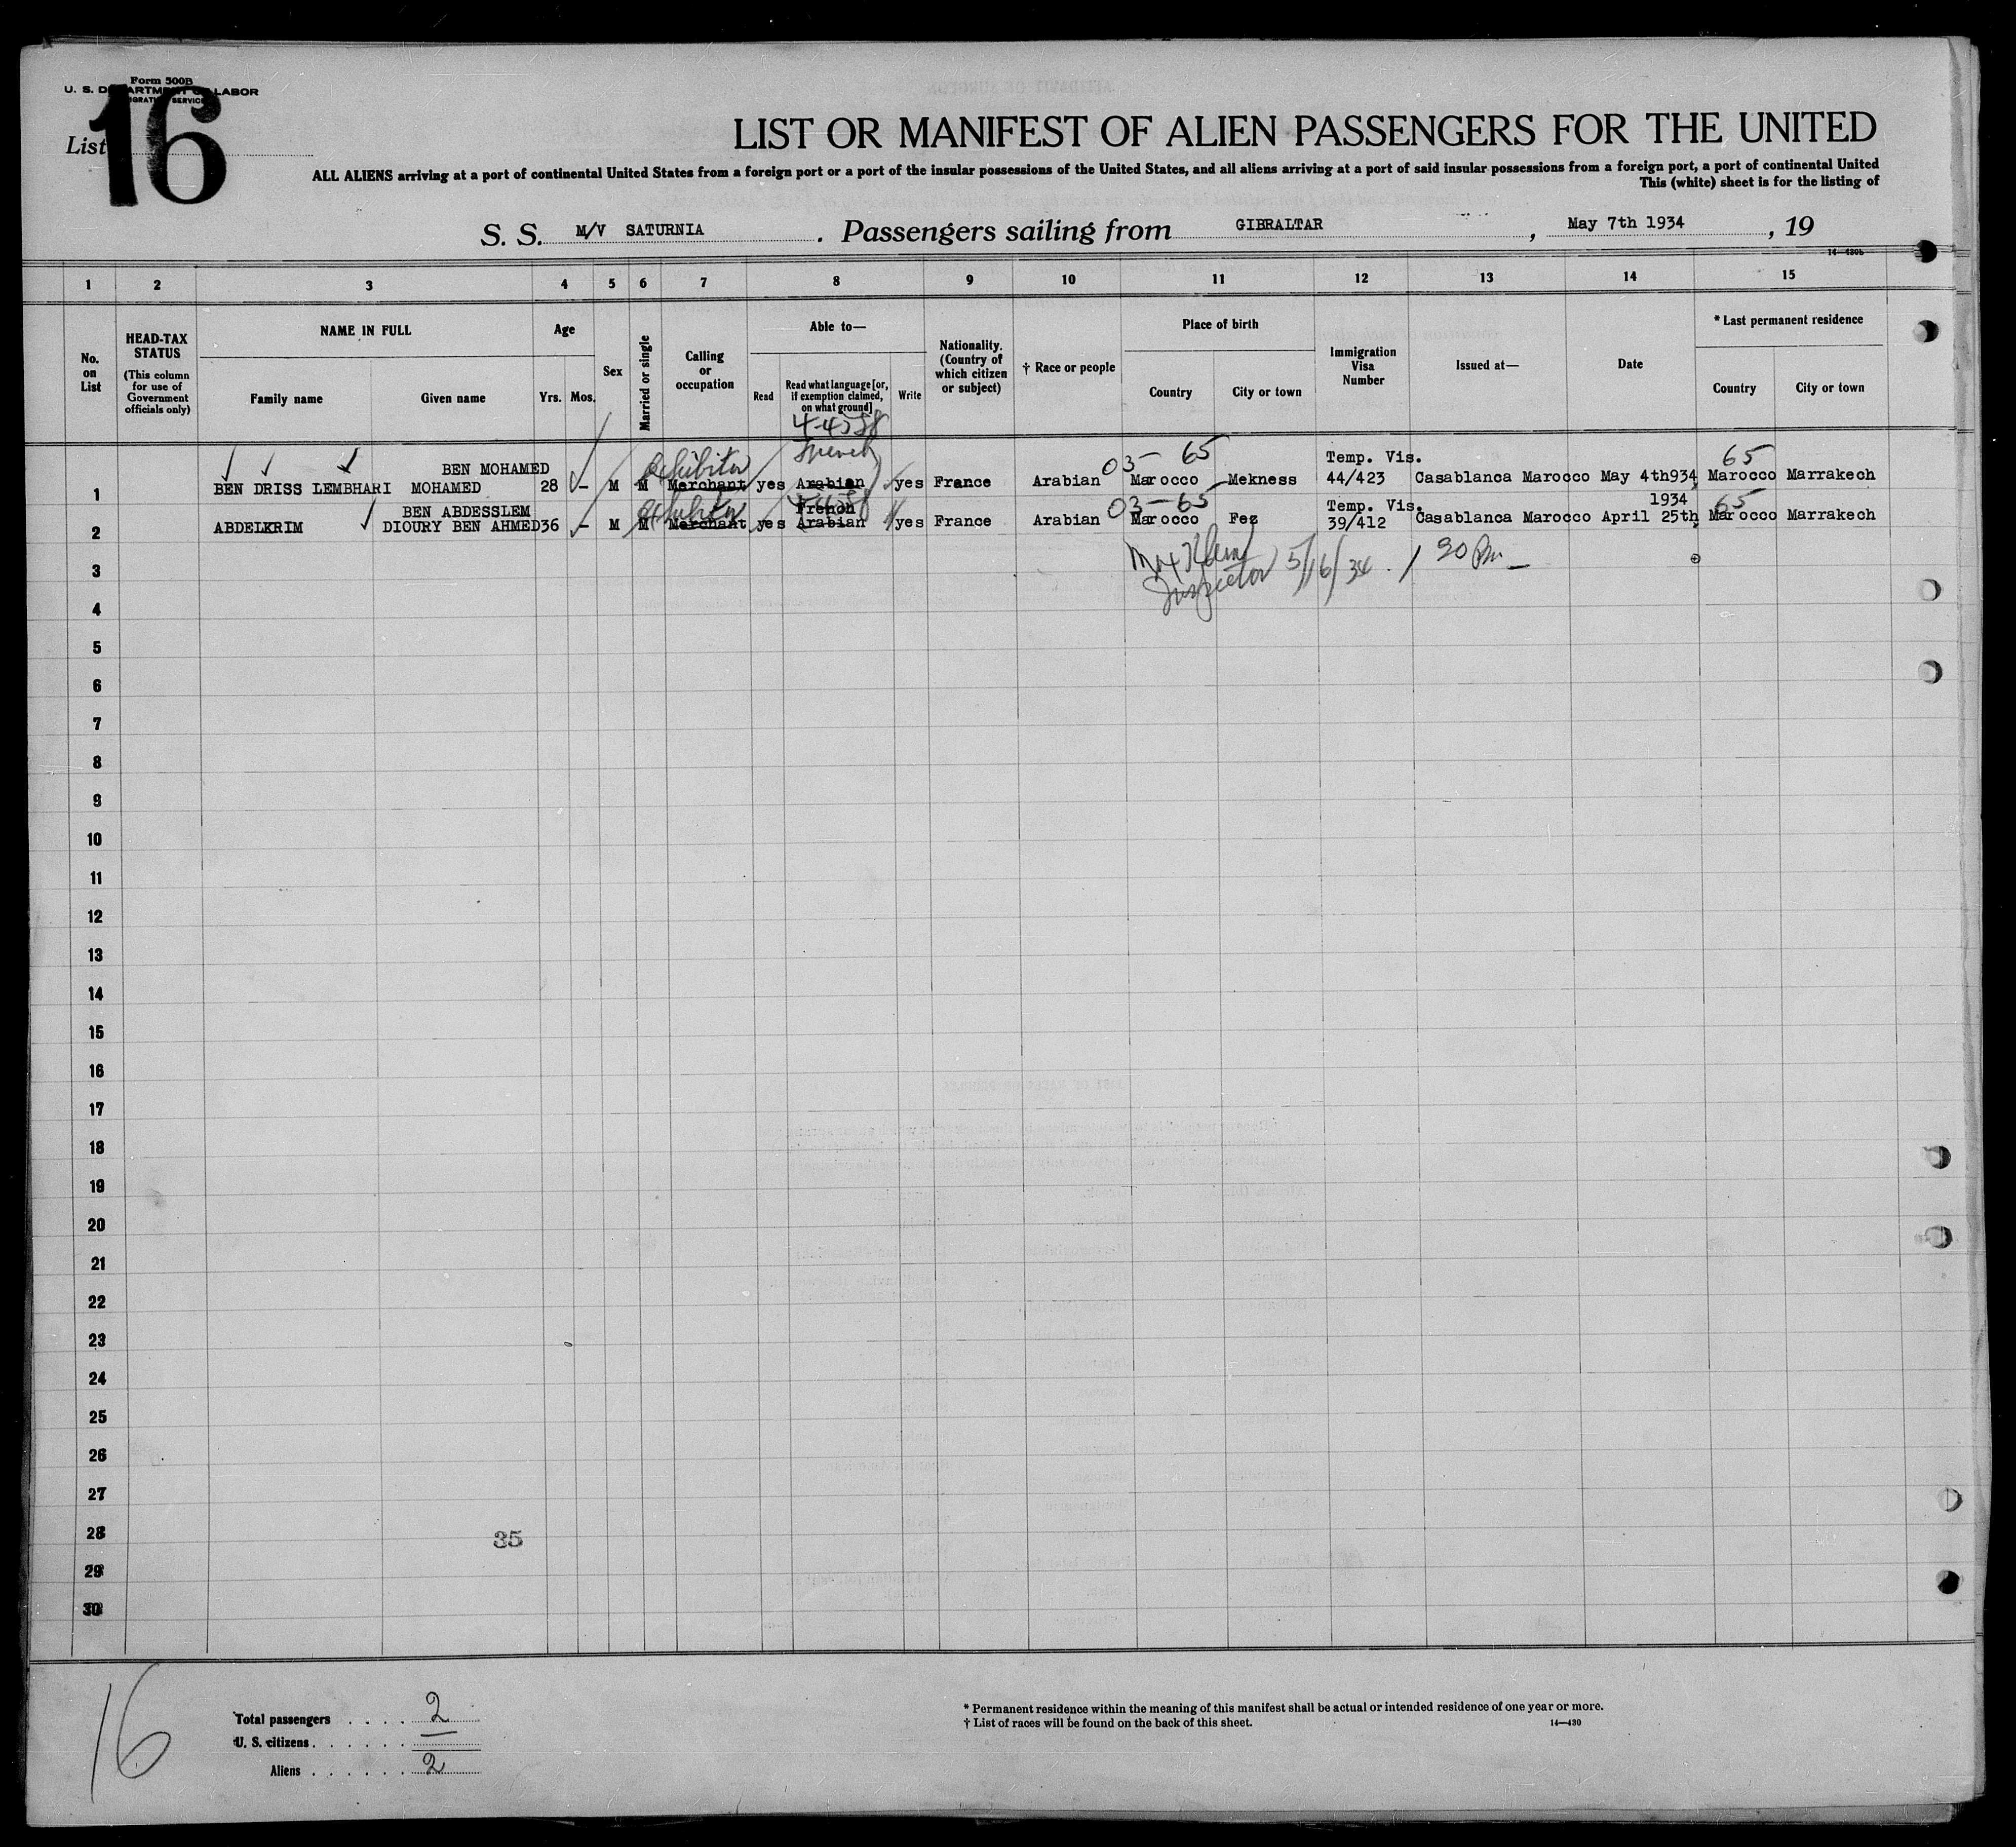 Form 500B
U. S. DEPARTMENT OF LABOR
IMMIGRATION SERVICE
List 16
LIST OR MANIFEST OF ALIEN PASSENGERS FOR THE UNITED
ALL ALIENS arriving at a port of continental United States from a foreign port or a port of the insular possessions of the United States, and all aliens arriving at a port of said insular possessions from a foreign port, a port of continental United
This (white) sheet is for the listing of
S. S. M/V SATURNIA. Passengers sailing from GIBRALTAR, May 7th 1934, 19
14—430b
1 2 3 4 5 6 7 8 9 10 11 12 13 14 15
No. on List
HEAD-TAX STATUS
(This column for use of Government officials only)
NAME IN FULL
Family name
Given name
Age
Yrs. Mos.
Sex
Married or single
Calling or occupation
Able to—
Read
Read what language [or, if exemption claimed, on what ground]
Write
Nationality. (Country of which citizen or subject)
† Race or people
Place of birth
Country
City or town
Immigration Visa Number
Issued at—
Date
* Last permanent residence
Country
City or town
French
Exhibitor 03-65 65
BEN MOHAMED Temp. Vis.
1 BEN DRISS LEMBHARI MOHAMED 28 - M M Merchant yes Arabian yes France Arabian Marocco Mekness 44/423 Casablanca Marocco May 4th934 Marocco Marrakech
Exhibitor 03-65 65
BEN ABDESSLEM French Temp. Vis. 1934
2 ABDELKRIM DIOURY BEN AHMED 36 - M M Merchant yes Arabian yes France Arabian Marocco Fez 39/412 Casablanca Marocco April 25th Marocco Marrakech
3
Inspector 5/16/34. 1 30 Pm
4
5
6
7
8
9
10
11
12
13
14
15
16
17
18
19
20
21
22
23
24
25
26
27
28
35
29
30
16
Total passengers . . . . 2
U. S. citizens . . . . . .
Aliens . . . . . . 2
* Permanent residence within the meaning of this manifest shall be actual or intended residence of one year or more.
† List of races will be found on the back of this sheet.
14—430